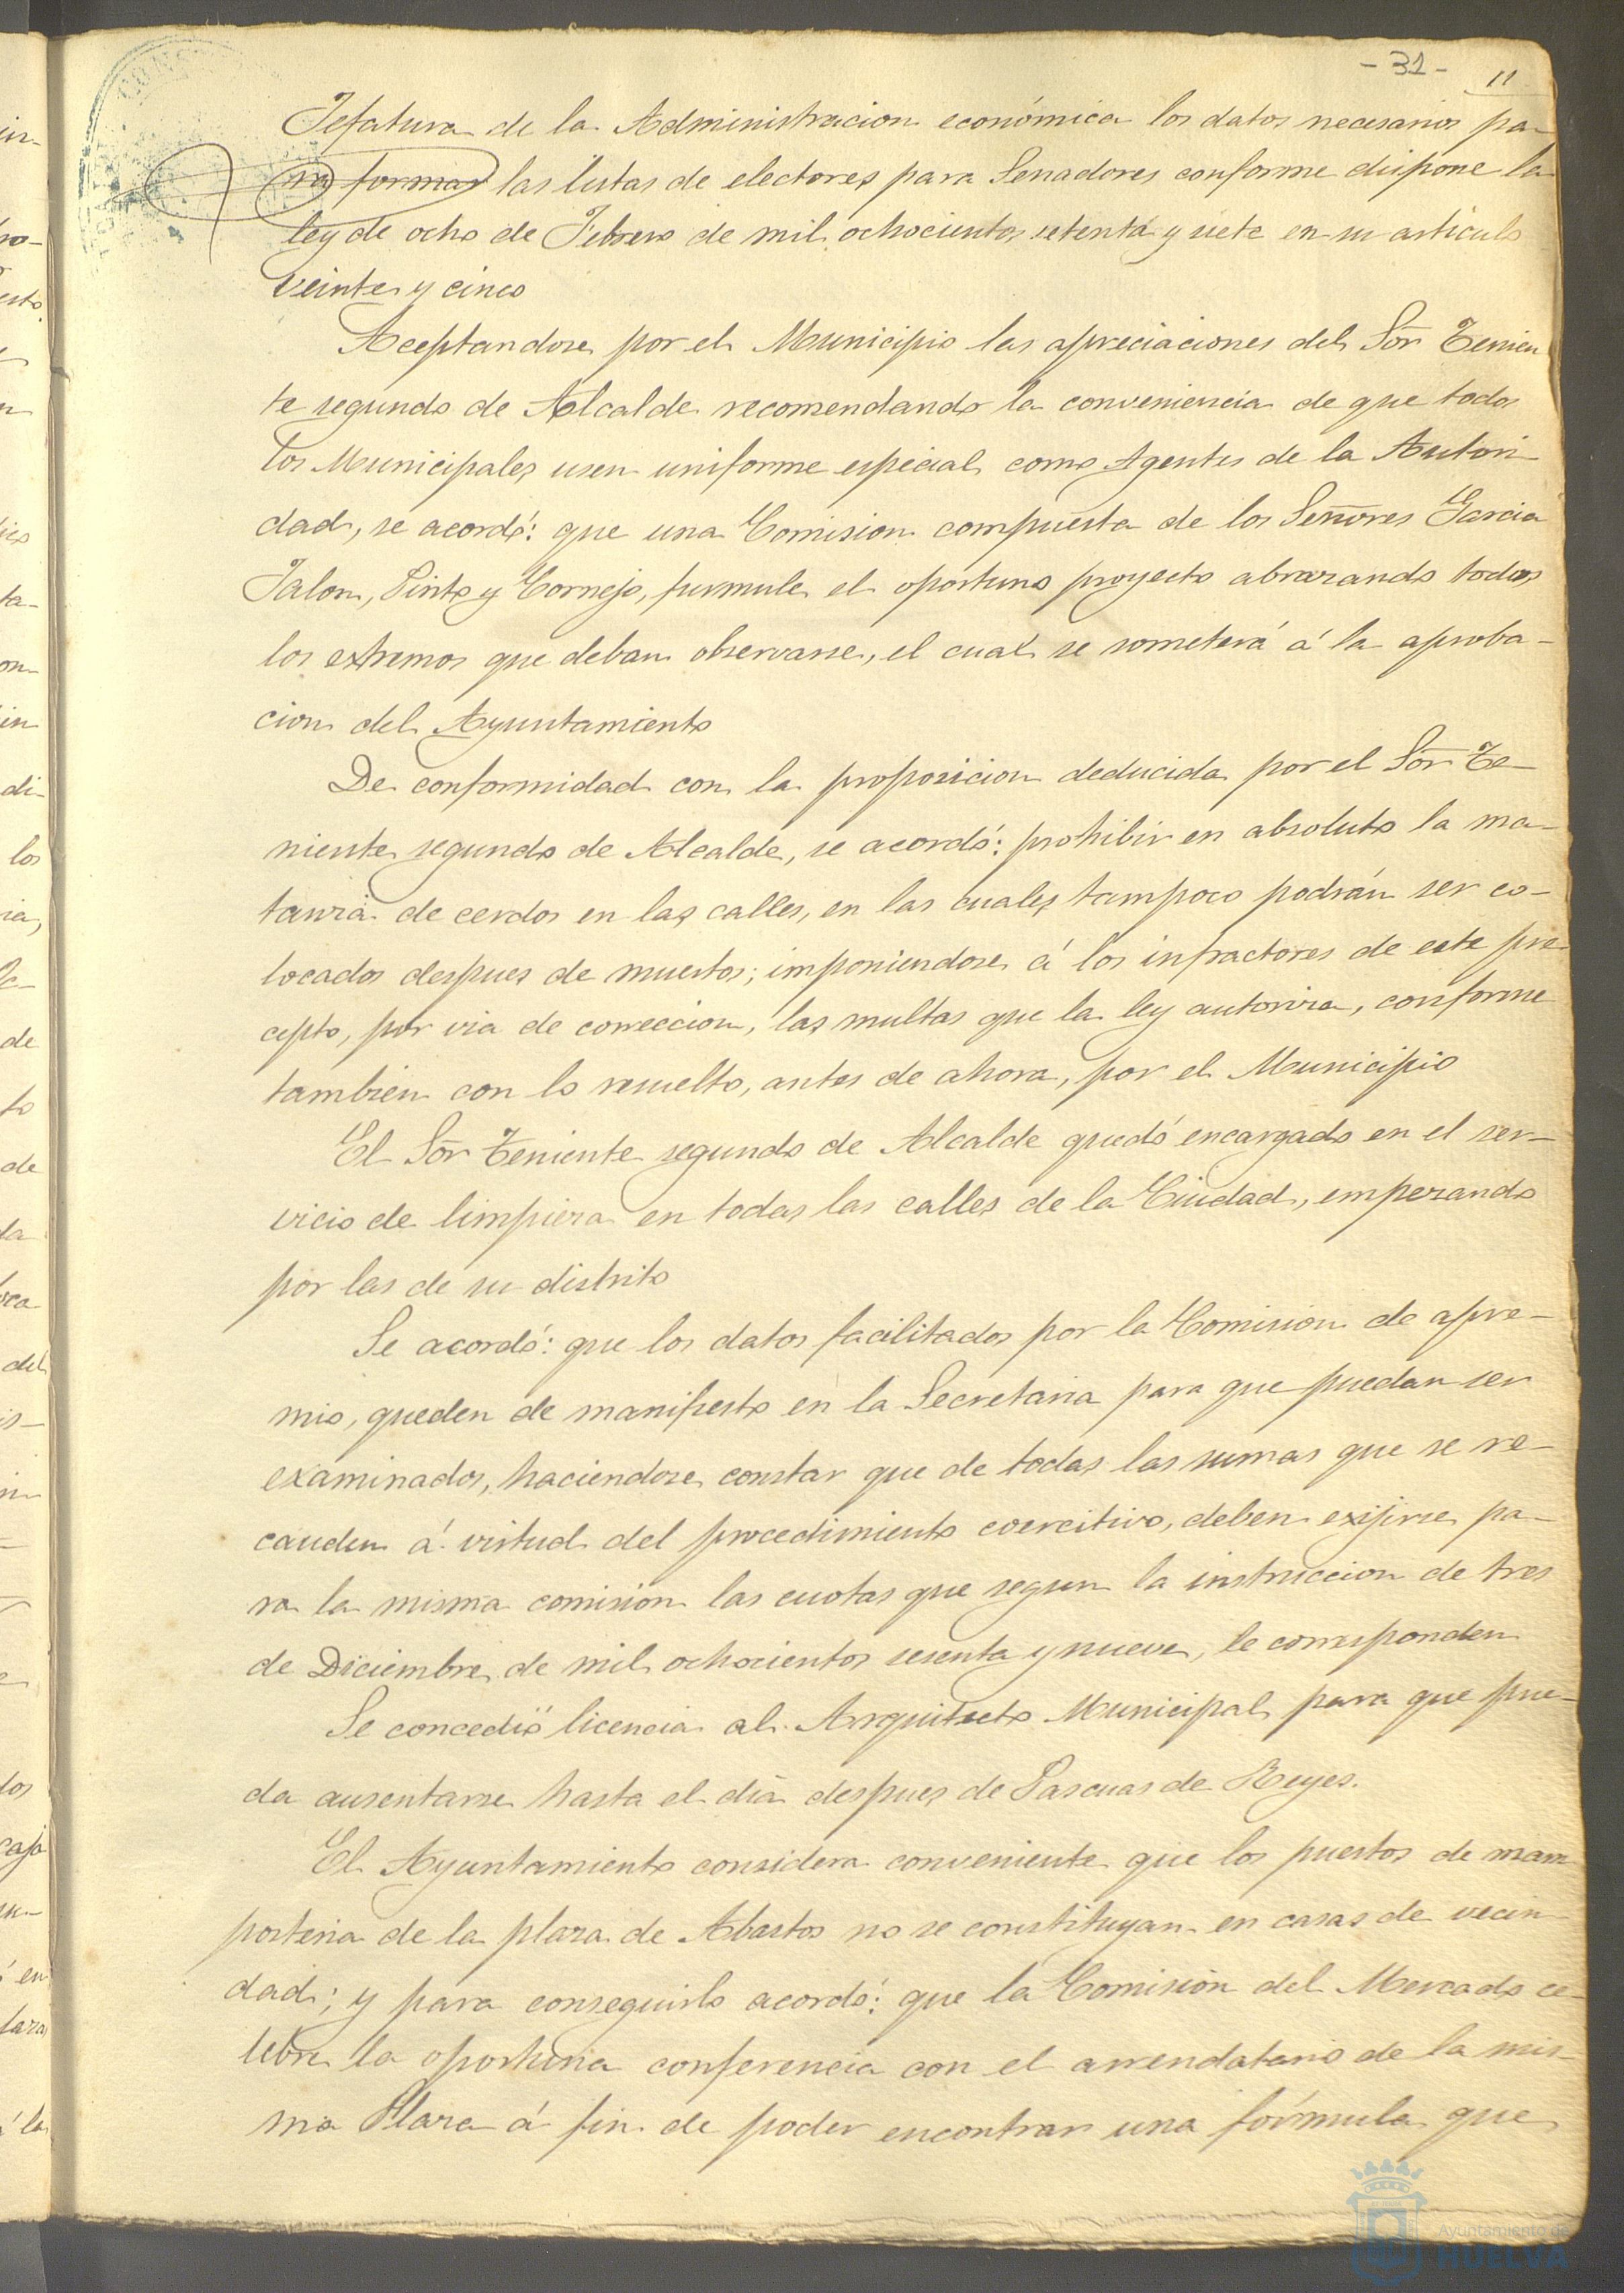 - 31 -
11
Jefatura de la Administracion económica los datos necesarios pa-
ra formar las listas de electores para Senadores conforme dispone la
ley de ocho de Febrero de mil ochocientos setenta y siete en su articulo
veinte y cinco
Aceptandose por el Municipio las apreciaciones del Sōr Tenien
te segundo de Alcalde recomendando la conveniencia de que todos
los Municipales usen uniforme especial como Agentes de la Autori-
dad, se acordó: que una Comision compuesta de los Señores Garcia
Jalon, Pinto y Cornejo, formule el oportuno proyecto abrazando todos
los extremos que deban observarse, el cual se someterá á la aproba-
cion del Ayuntamiento
De conformidad con la proposicion deducida por el Sōr Te-
niente segundo de Alcalde, se acordó: prohibir en absoluto la ma-
tanza de cerdos en las calles, en las cuales tampoco podrán ser co-
locados despues de muertos; imponiendose á los infractores de este pre-
cepto, por via de correccion, las multas que la ley autoriza, conforme
tambien con lo resuelto, antes de ahora, por el Municipio
El Sōr Teniente segundo de Alcalde quedó encargado en el ser-
vicio de limpieza en todas las calles de la Ciudad, empezando
por las de su distrito
Se acordó: que los datos facilitados por la Comision de apre-
mio, queden de manifiesto en la Secretaria para que puedan ser
examinados, haciendose constar que de todas las sumas que se re-
cauden á virtud del procedimiento coercitivo, deben exijirse pa-
ra la misma comision las cuotas que segun la instruccion de tres
de Diciembre de mil ochocientos sesenta y nueve, le corresponden
Se concedió licencia al Arquitecto Municipal para que pue-
da ausentarse hasta el dia despues de Pascuas de Reyes.
El Ayuntamiento considera conveniente que los puestos de mam
posteria de la plaza de Abastos no se constituyan en casas de vecin
dad; y para conseguirlo acordó: que la Comisión del Mercado ce-
lebre la oportuna conferencia con el arrendatario de la mis-
ma Plaza á fin de poder encontrar una fórmula que
Ayuntamiento de
HUELVA